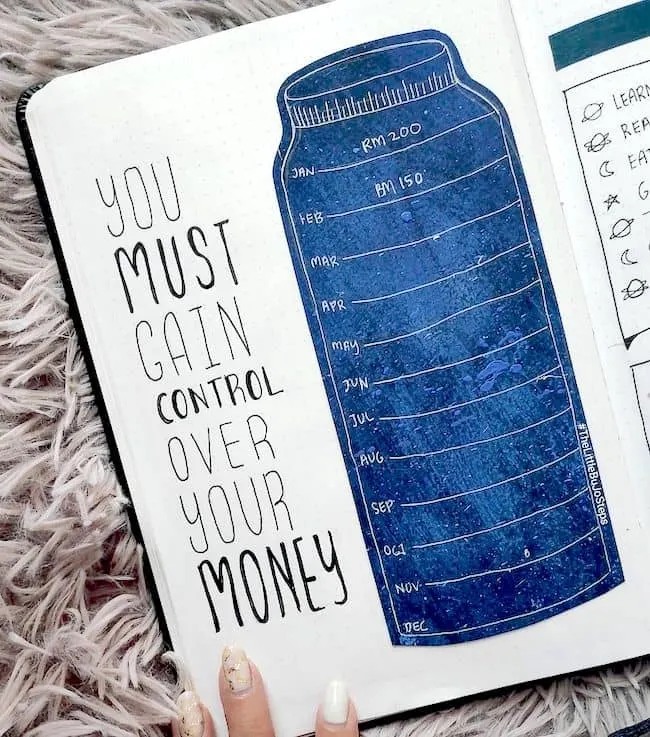 YOU
MUST
GAIN
CONTROL
OVER
YOUR
MONEY
RM 200
JAN
RM 150
FEB
MAR
APR
MAY
JUN
JUL
AUG
SEP
OCT
NOV
DEC
#TheLittleBuJoSteps
LEARN
REA
EAT
G